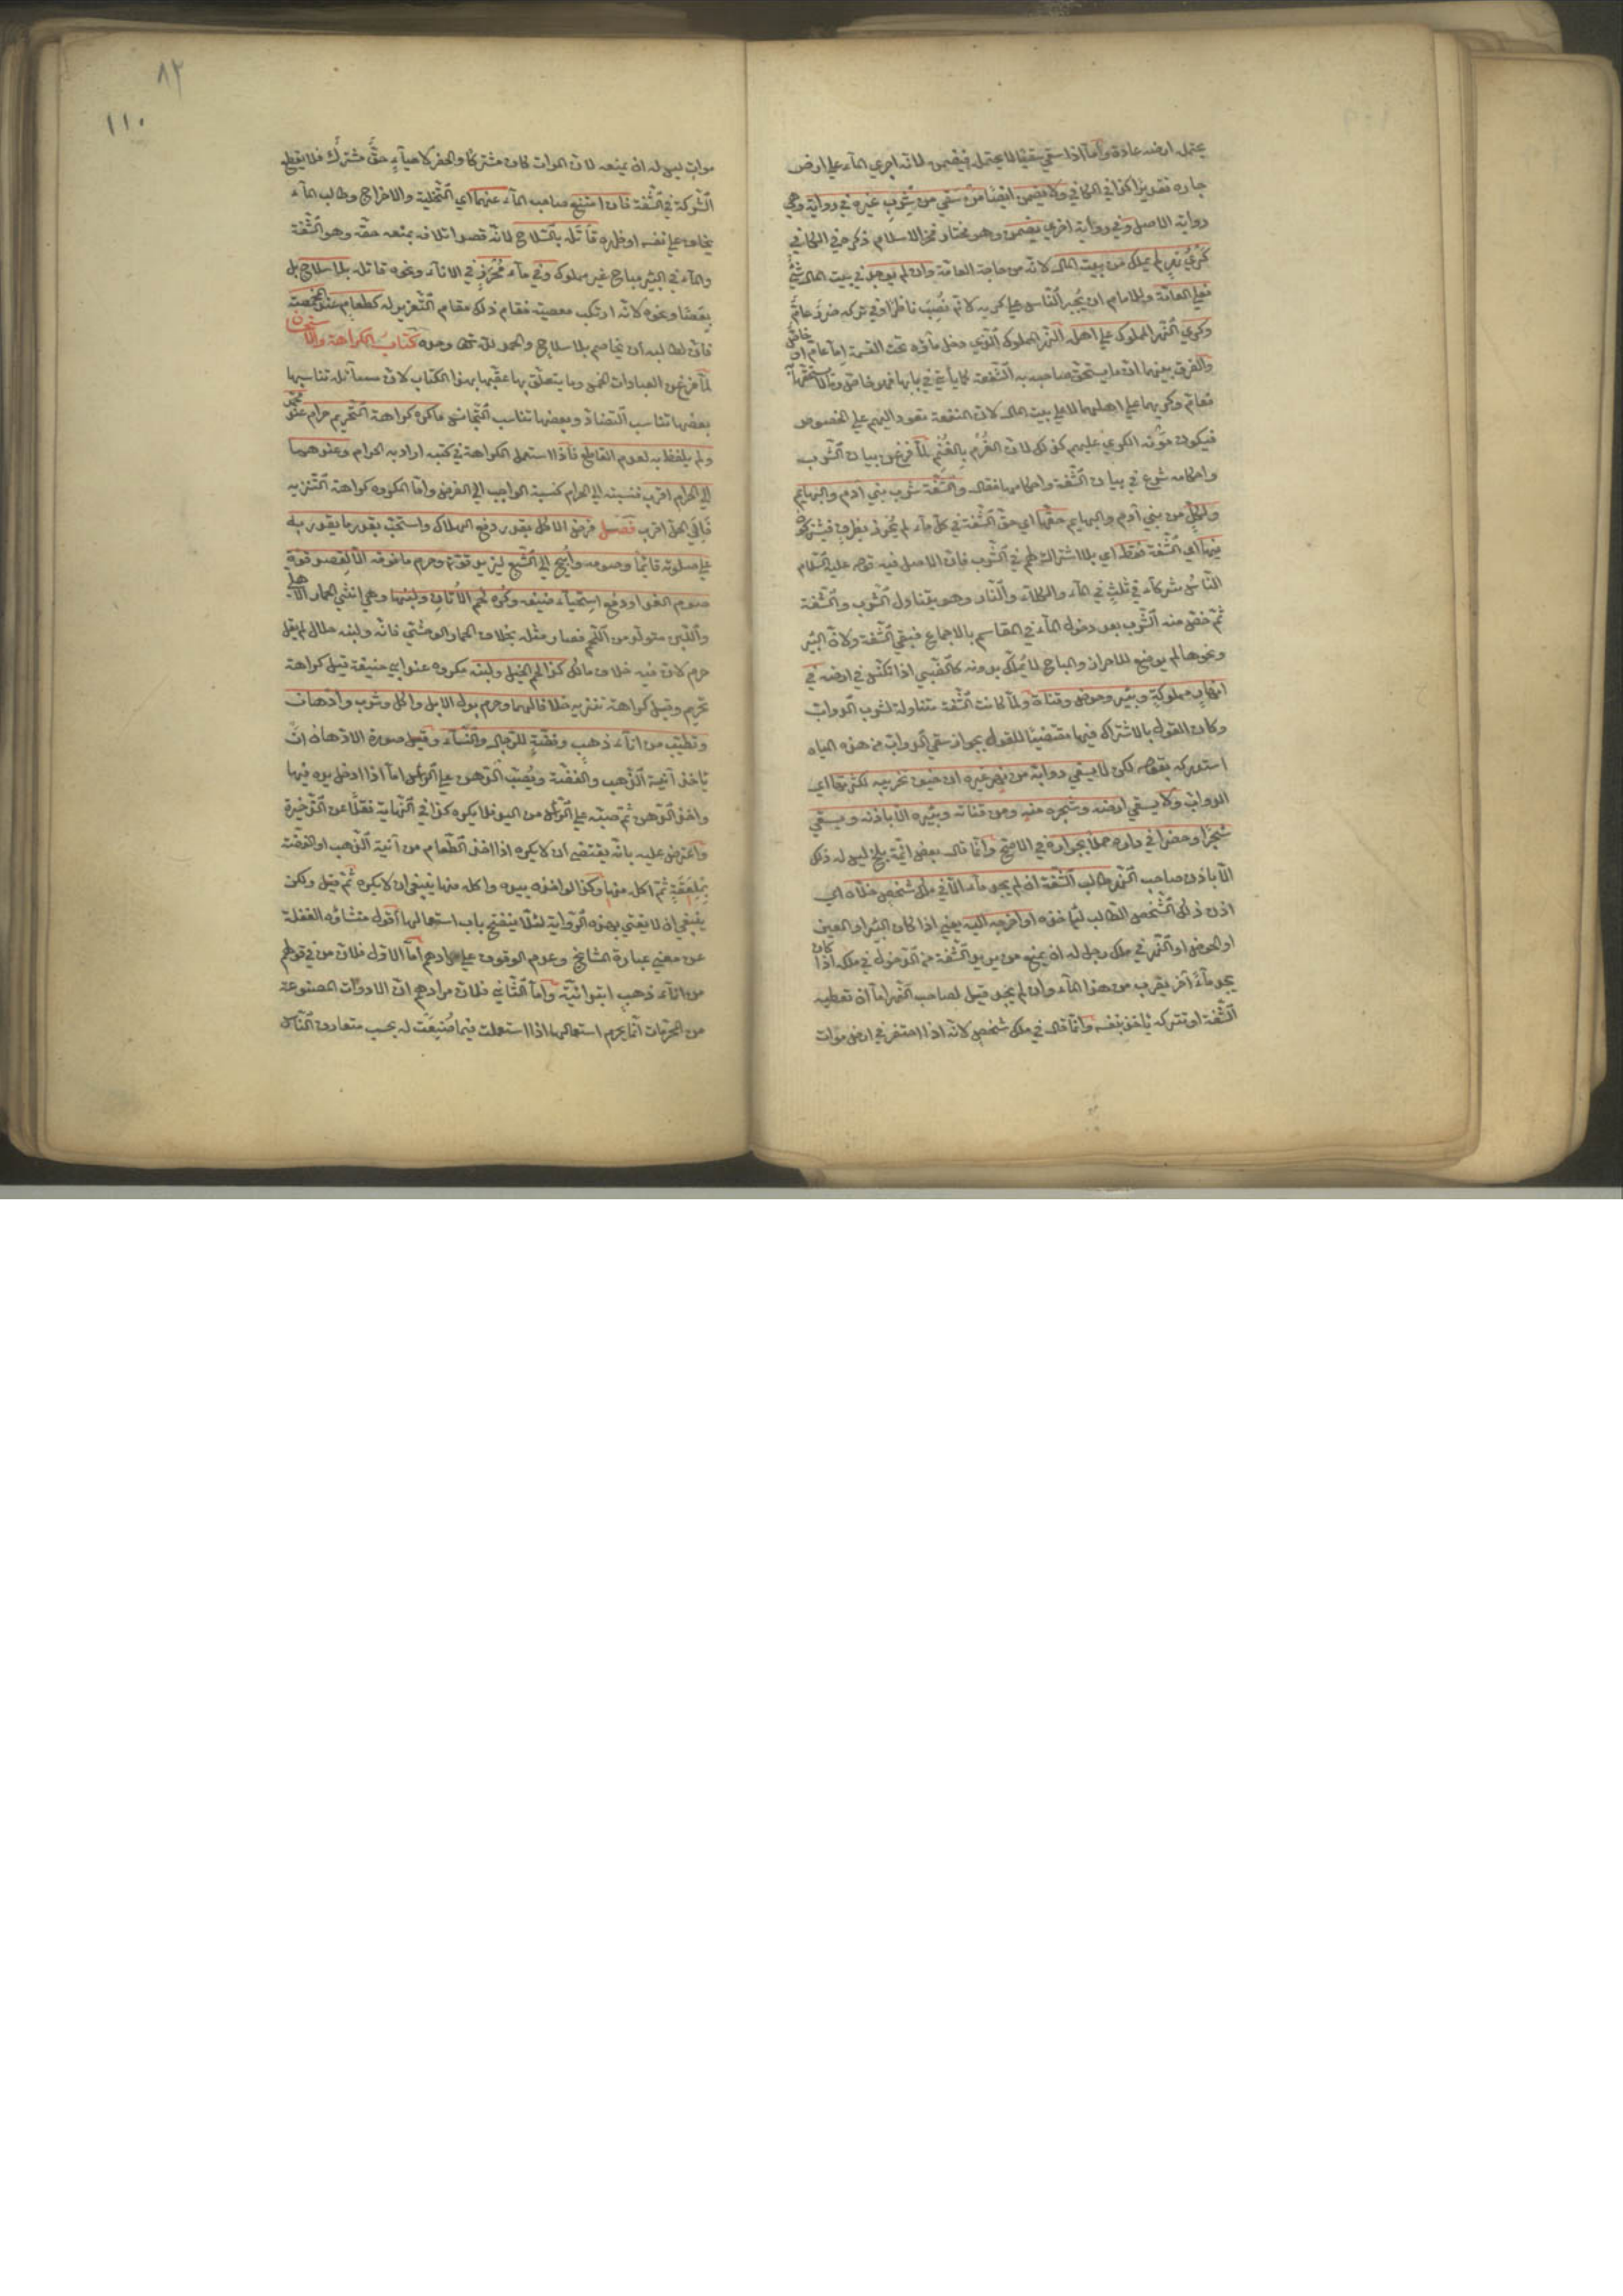 يحتمل ارضه عادة وامّا اذا سقي سقيًا لا يحتمل فيضمن لانّه اجري المآء علي ارض
جاره تقديرًا كذا في الكافي ولا يضمن ايضًا مَنْ سَقي من شِربِ غيره في رواية وهي
رواية الاصل وفي رواية اخري يضمن وهو مختار فخر الاسلام ذكره في الكافي
كَرْيُ نهرٍ لم يملك من بيت المال لانّه من حاجة العامّة وان لم يوجد في بيت المال شئٌ
فعلي العامّة وللامام ان يُجبر النّاس علي كريه لانّه نُصِبَ ناظرًا وفي تركه ضررٌ عامٌّ
وكري النّهر المملوك علي اهله النّهر المملوك الّذي دخل مآؤه تحت القسمة إمّا عام او خاصّ
والفرق بينهما انّ ما يستحقّ صاحبه به الشّفعة كما يأتي في بابها فهو خاصّ وما لا يستحقّ بها
فعامّ وكريهما علي اهلهما لا علي بيت المال لانّ المنفعة تعود اليهم علي الخصوص
فيكون مؤنة الكري عليهم كذلك لانّ الغُرْم بِالغُنْم لمّا فرغ من بيان الشّرب
واحكامه شرع في بيان الشّفة واحكامها فقال والشّفة شرب بني آدم والبهايم
ولكلٍّ من بني آدم والبهايم حقّها اي حقّ الشّفة في كلّ مآء لم يُحرز بظرفٍ فيشتركوا
فيها اي الشّفة فقط اي بلا اشتراك لهم في الشّرب فانّ الاصل فيه قوله عليه السّلام
النّاسُ شركآء في ثلثٍ في المآء والكلآء والنّار وهو يتناول الشّرب والشّفة
ثمّ خصّ منه الشّرب بعد دخول المآء في المقاسم بالاجماع فبقي الشّفة ولانّ البئر
ونحوها لم يوضع للاحراز والمباح لا يُملَك بدونه كالظّبي اذا تكنّس في ارضه في
انهارٍ مملوكةٍ وبئرٍ وحوضٍ وقناة ولمّا كانت الشّفة متناولة لشرب الدّوابّ
وكان القول بالاشتراك فيها مقتضيًا للقول بجواز سقي الدّوابّ من هذه المياه
استدركه بقوله لكن لا يسقي دوابّه من نهر غيره ان خيف تخريبه لكثرتها اي
الدّوابّ ولا يسقي ارضه وشجره منه ومن قناته وبئره الّا باذنه ويسقي
شجرًا وخضرًا في داره حملًا بجراره في الاصحّ وانّما قال بعض ائمّة بلخ ليس له ذلك
الّا باذن صاحب النّهر طالب الشّفة ان لم يجد مآء الّا في ملك شخصٍ خلّاه اي
اذن ذلك الشّخص الطّالب ليأخذه او اخرجه اليه يعني اذا كان البئر او العين
او الحوض او النّهر في ملك رجل له ان يمنع من يريد الشّفة من الدّخول في ملكه اذا كان
يجد مآءً آخر بقرب من هذا المآء وان لم يجد قيل لصاحب النّهر امّا ان تعطيه
الشّفة او تتركه يأخذ بنفسه وانّما قال في ملك شخصٍ لانّه اذا احتفر في ارض موات
٨٢
١١٠
مواتٍ ليس له ان يمنعه لانّ الموات كان مشتركًا والحفر لاحيآءِ حقٍّ مشتركٍ فلا يقطع
الشّركة في الشّفة فان امتنع صاحب المآء عنهما اي التّخلية والاخراج وطالب المآء
يخاف علي نفسه او ظهره قاتَله بالسّلاح لانّه قصد اتلافه بمنعه حقّه وهو الشّفة
والمآء في البئر مباح غير مملوك وفي مآءٍ مُحْرَزٍ في الانآء ونحوه قاتله بلا سلاح بل
بعصًا ونحوه لانّه ارتكب معصيةً فقام ذلك مقام التّعزير له كطعامٍ عند المخمصة
فانّ لطالبه ان يخاصم بلا سلاح والحمد لله تعالي وحده كتاب الكراهة والاستحسان
لمّا فرغ من العبادات الخمس وما يتعلّق بها عقّبها بهذا الكتاب لانّ مسآئله تناسبها
بعضها تناسب التّضادّ وبعضها تناسب التّجانس ما كره كراهة التّحريم حرام عند محمّد
ولم يلفظ به لعدم القاطع فاذا استعمل الكراهة في كتبه اراد به الحرام وعندهما
الي الحرام اقرب فنسبته الي الحرام كنسبة الواجب الي الفرض وامّا المكروه كراهة التّنزيه
فالي الحلّ اقرب فصل فرض الاكل بقدر دفع الهلاك واستحبّ بقدر ما يقدر به
علي صلوته قائمًا وصومه وأُبيح الي الشّبع ليزيد قوّته وحرم ما فوقه الّا لقصد قوّة
صوم الغد او دفع استحيآء ضيفه وكُره لحم الاتان ولبنها وهي انثي الحمار الاهلي
واللّبن متولّد من اللّحم فصار مثله بخلاف الحمار الوحشي فانّه ولبنه حلال لم يقل
حرم لانّ فيه خلاف مالك كذا لحم الخيل ولبنه مكروه عند ابي حنيفة قيل كراهة
تحريم وقيل كراهة تنزيه خلافا لهما وحرم بول الابل واكل وشرب وادّهان
وتطيّب من انآء ذهبٍ وفضّةٍ للرّجال والنّسآء وقيل صورة الادّهان ان
يأخذ آنية الذّهب والفضّة ويُصبّ الدّهن علي الرّأس امّا اذا ادخل يده فيها
واخذ الدّهن ثمّ صبّه علي الرّأس من اليد فلا يكره كذا في النّهاية نقلًا عن الذّخيرة
واعترض عليه بانّه يقتضي ان لا يكره اذا اخذ الطّعام من آنية الذّهب او الفضّة
بِمِلْعَقَةٍ ثمّ اكله منها وكذا لو اخذه بيده واكله منها ينبغي ان لا يكره ثمّ قيل ولكن
ينبغي ان لا يفتي بهذه الرّواية لئلّا ينفتح باب استعمالها اقول منشاؤه الغفلة
عن معني عبارة المشايخ وعدم الوقوف علي مرادهم امّا الاوّل فلانّ من في قولهم
من انآء ذهبٍ ابتدائيّة وامّا الثّاني فلانّ مرادهم انّ الادوّات المصنوعة
من المحرّمات انّما يحرم استعمالها اذا استعملت فيما صُنِعَت له بحسب متعارف النّاس